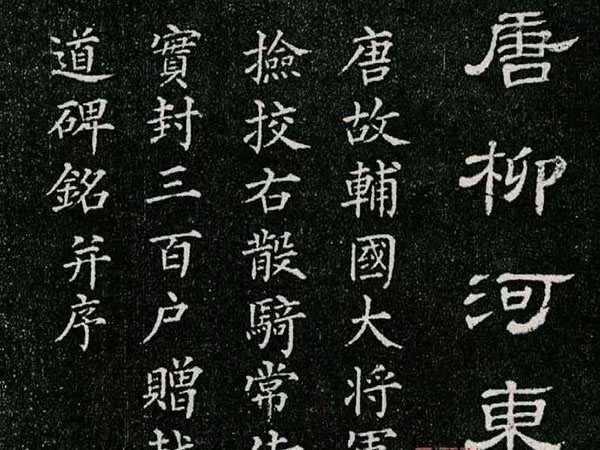 唐柳河東
唐故輔國大将軍
撿挍右散騎常侍
實封三百户贈越
道碑銘并序